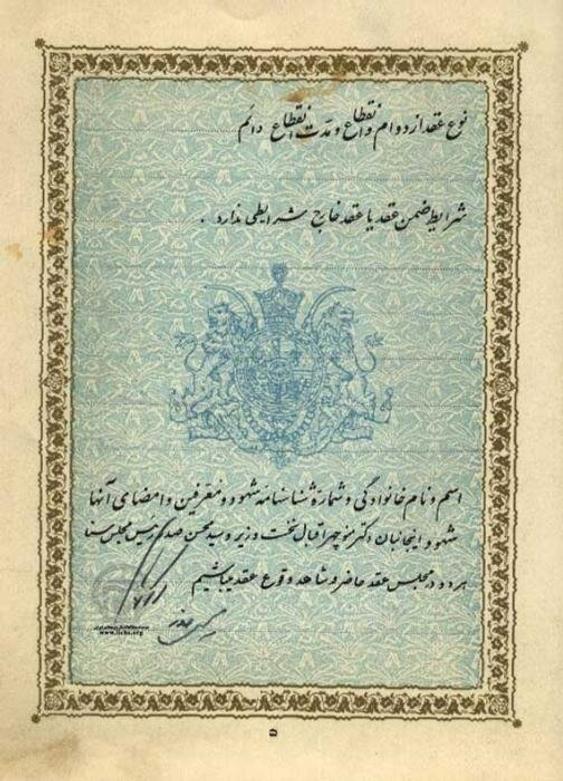 نوع عقد از دوام و انقطاع و مدت انقطاع دائم
شرایط ضمن عقد یا عقد خارج شرایطی ندارد .
اسم و نام خانوادگی و شمارهٔ شناسنامه شهود و معرفین و امضای آنها
شهود اینجانبان دکتر منوچهر اقبال نخست وزیر و سید محسن صدر رئیس مجلس سنا
هر دو در مجلس عقد حاضر و شاهد وقوع عقد میباشیم
محسن صدر
www.iichs.org
۵